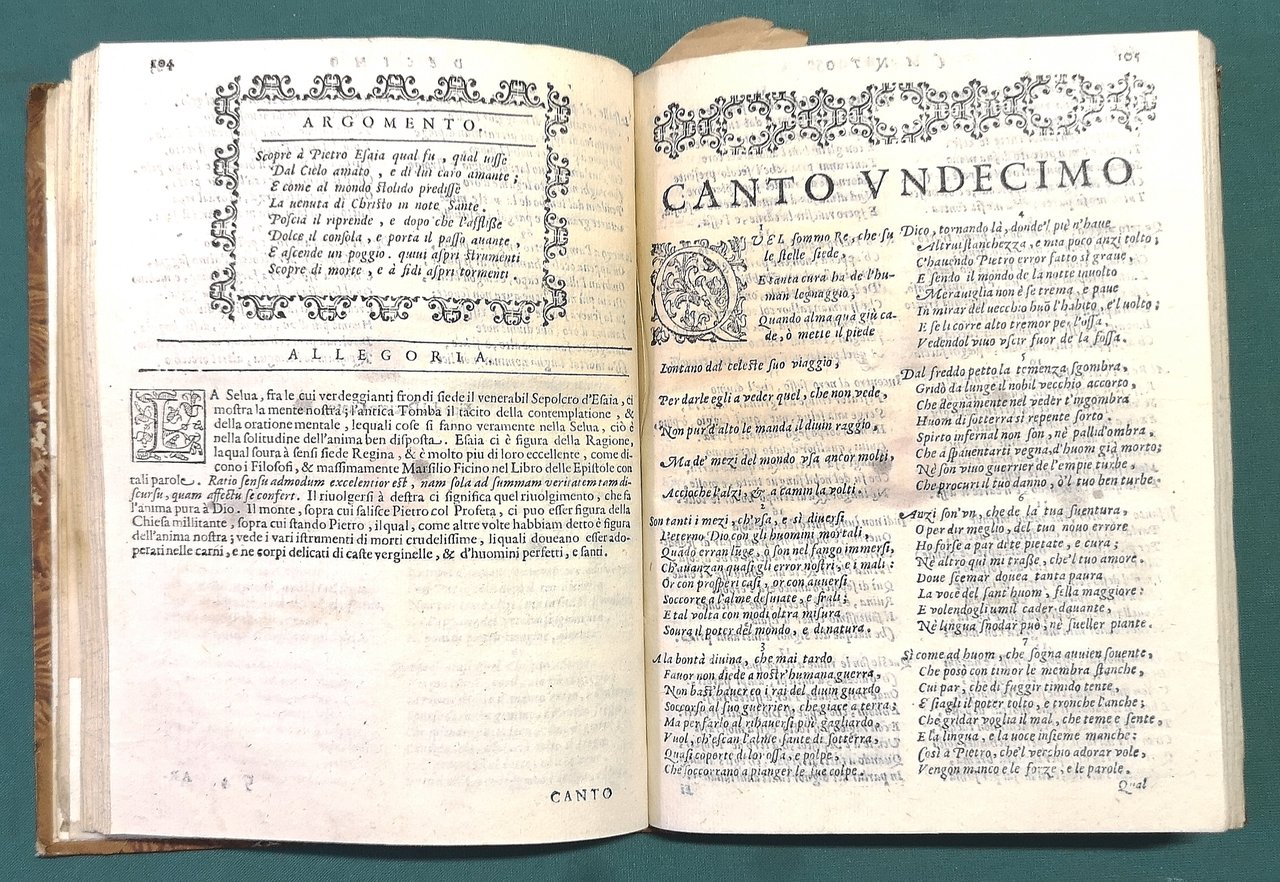 104
ARGOMENTO.
Scopre à Pietro Esaia qual fu, qual uisse
Dal Cielo amato, e di lui caro amante;
E come al mondo stolido predisse
La uenuta di Christo in note Sante.
Poscia il riprende, e dopo che l'afflisse
Dolce il consola, e porta il passo auante,
E ascende un poggio. quiui aspri strumenti
Scopre di morte, e à fidi aspri tormenti.
ALLEGORIA.
LA Selua, fra le cui verdeggianti frondi siede il venerabil Sepolcro d'Esaia, ci
mostra la mente nostra; l'antica Tomba il tacito della contemplatione, &
della oratione mentale, lequali cose si fanno veramente nella Selua, ciò è
nella solitudine dell'anima ben disposta. Esaia ci è figura della Ragione,
laqual soura à sensi siede Regina, & è molto piu di loro eccellente, come di-
cono i Filosofi, & massimamente Marsilio Ficino nel Libro delle Epistole con
tali parole. Ratio sensu admodum excelentior est, nam sola ad summam veritatem tem di-
scursu, quam affectu se confert. Il riuolgersi à destra ci significa quel riuolgimento, che fa
l'anima pura à Dio. Il monte, sopra cui salisce Pietro col Profeta, ci puo esser figura della
Chiesa militante, sopra cui stando Pietro, ilqual, come altre volte habbiam detto è figura
dell'anima nostra; vede i vari istrumenti di morti crudelissime, liquali doueano esser ado-
perati nelle carni, e ne corpi delicati di caste verginelle, & d'huomini perfetti, e santi.
CANTO
105
CANTO VNDECIMO
1
QVEL sommo Re, che su
le stelle siede,
E tanta cura ha de l'hu-
man legnaggio,
Quando alma quà giù ca-
de, ò mette il piede
Lontano dal celeste suo viaggio,
Per darle egli a veder quel, che non vede,
Non pur d'alto le manda il diuin raggio,
Ma de' mezi del mondo vsa ancor molti,
Accioche l'alzi, & a camin la volti.
2
Son tanti i mezi, ch'vsa, e sì diuersi
L'eterno Dio con gli huomini mortali,
Quādo erran lūge, ò son nel fango immersi,
Ch'auanzan quasi gli error nostri, e i mali:
Or con prosperi casi, or con auuersi
Soccorre a l'alme desuiate, e frali;
E tal volta con modi oltra misura
Soura il poter del mondo, e di natura.
3
A la bontà diuina, che mai tardo
Fauor non diede a nostr'humana guerra,
Non basti hauer co i rai del diuin guardo
Soccorso al suo guerrier, che giace a terra;
Ma per farlo al rihauersi più gagliardo,
Vuol, ch'escan l'alme sante di sotterra,
Quasi coperte di lor ossa, e polpe,
Che soccorrano a pianger le sue colpe.
4
Dico, tornando là, donde'l piè n'haue
Altrui stanchezza, e mia poco anzi tolto;
C'hauendo Pietro error fatto sì graue,
E sendo il mondo de la notte inuolto
Merauiglia non è se trema, e paue
In mirar del uecchio huō l'habito, e'l uolto;
E se li corre alto tremor per l'ossa,
Vedendol viuo vscir fuor de la fossa.
5
Dal freddo petto la temenza sgombra,
Gridò da lunge il nobil vecchio accorto,
Che degnamente nel veder t'ingombra
Huom di sotterra sì repente sorto.
Spirto infernal non son, nè pallid'ombra,
Che a spauentarti vegna, d'huom già morto;
Nè son viuo guerrier de l'empie turbe,
Che procuri il tuo danno, ò'l tuo ben turbe.
6
Anzi son'vn, che de la tua suentura,
O per dir meglio, del tuo nouo errore
Ho forse a par di te pietate, e cura;
Nè altro qui mi trasse, che'l tuo amore.
Doue scemar douea tanta paura
La voce del sant'huom, fella maggiore:
E volendogli umil cader dauante,
Nè lingua snodar può, nè sueller piante.
7
Sì come ad huom, che sogna auuien souente,
Che posò con timor le membra stanche,
Cui par, che di fuggir timido tente,
E siagli il poter tolto, e tronche l'anche;
Che gridar voglia il mal, che teme e sente,
E la lingua, e la uoce insieme manche:
Così a Pietro, che'l vecchio adorar vole,
Vengon manco e le forze, e le parole.
Qual